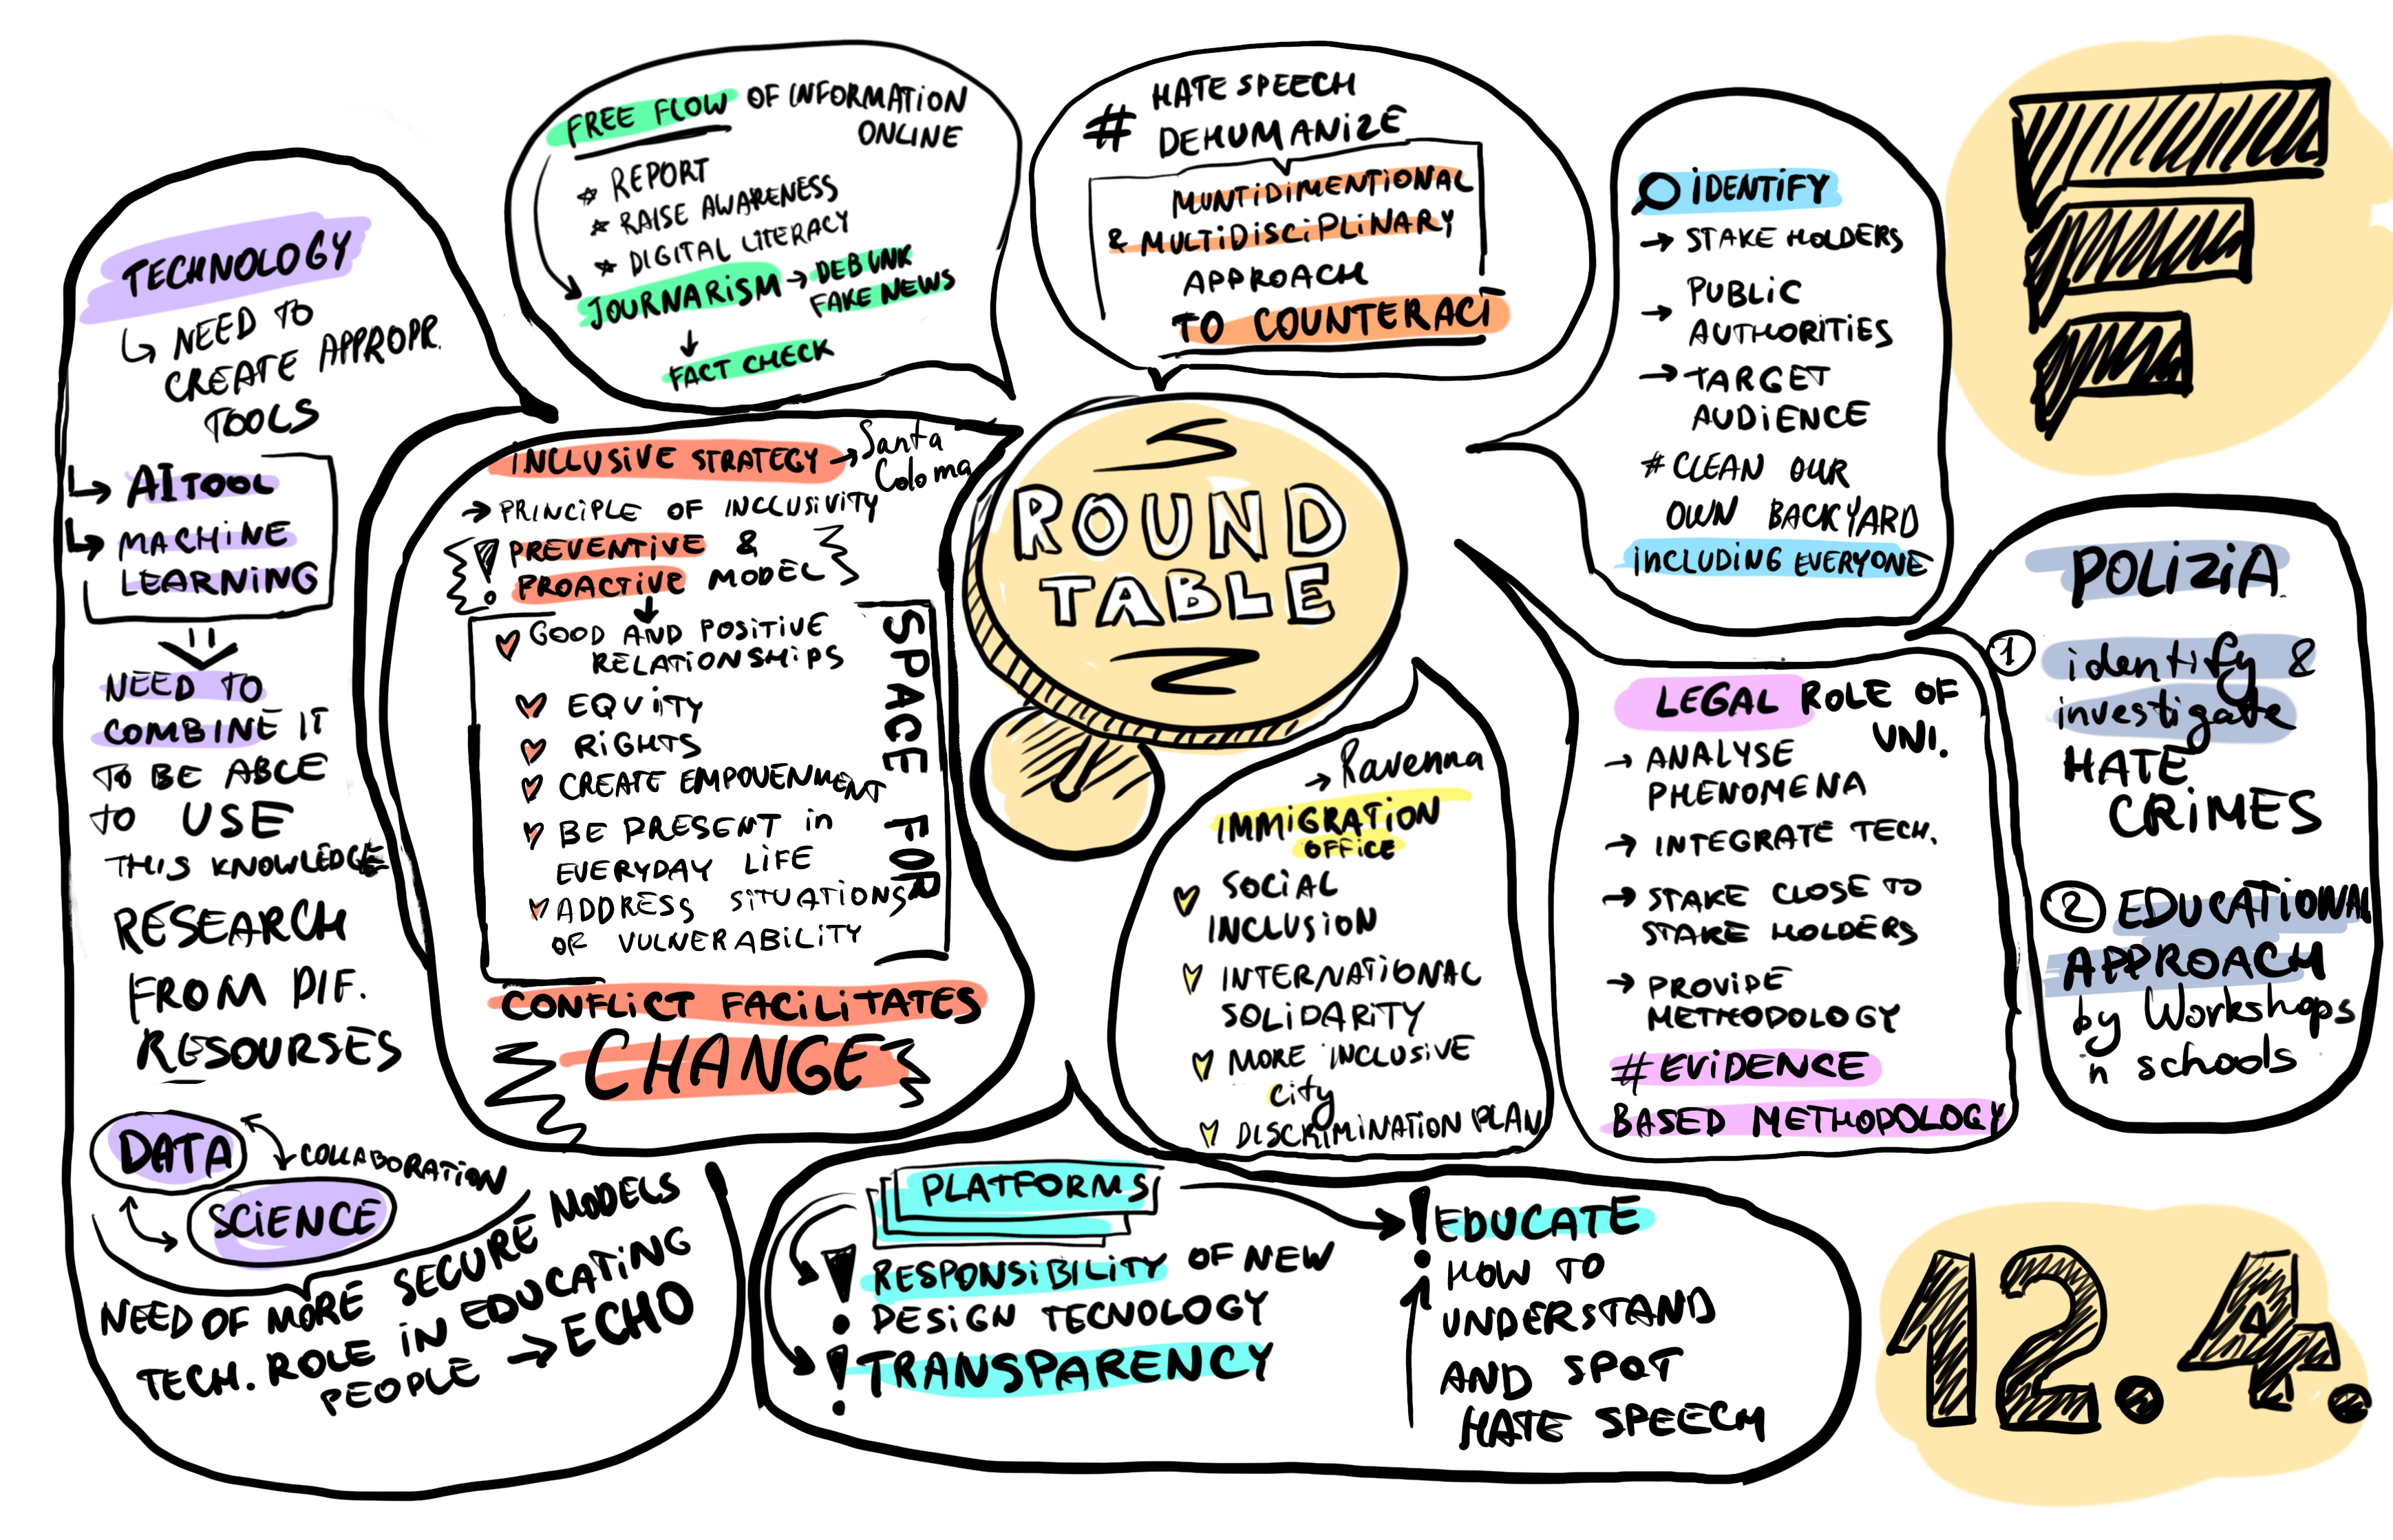 TECHNOLOGY
NEED TO
CREATE APPROPR.
TOOLS
AI TOOL
MACHINE
LEARNING
NEED TO
COMBINE IT
TO BE ABLE
TO USE
THIS KNOWLEDGE
RESEARCH
FROM DIF.
RESOURSES
DATA
COLLABORATION
SCIENCE
NEED OF MORE SECURE MODELS
TECH. ROLE IN EDUCATING
PEOPLE → ECHO
FREE FLOW OF INFORMATION
ONLINE
REPORT
RAISE AWARENESS
DIGITAL LITERACY
JOURNARISM → DEBUNK
FAKE NEWS
FACT CHECK
# HATE SPEECH
DEHUMANIZE
MUNTIDIMENTIONAL
& MULTIDISCIPLINARY
APPROACH
TO COUNTERACT
IDENTIFY
→ STAKE HOLDERS
→ PUBLIC
AUTHORITIES
→ TARGET
AUDIENCE
# CLEAN OUR
OWN BACKYARD
INCLUDING EVERYONE
INCLUSIVE STRATEGY → Santa
Coloma
→ PRINCIPLE OF INCLUSIVITY
! PREVENTIVE &
PROACTIVE MODEL
SPACE FOR
GOOD AND POSITIVE
RELATIONSHIPS
EQUITY
RIGHTS
CREATE EMPOVENMENT
BE PRESENT in
EVERYDAY LIFE
ADDRESS SITUATIONS
OF VULNERABILITY
CONFLICT FACILITATES
CHANGE
ROUND
TABLE
→ Ravenna
IMMIGRATION
OFFICE
SOCIAL
INCLUSION
INTERNATIONAL
SOLIDARITY
MORE INCLUSIVE
City
DISCRIMINATION PLAN
LEGAL ROLE OF
UNI.
→ ANALYSE
PHENOMENA
→ INTEGRATE TECH.
→ STAKE CLOSE TO
STAKE HOLDERS
→ PROVIDE
METHODOLOGY
# EVIDENCE
BASED METHODOLOGY
POLIZIA
1 identify &
investigate
HATE
CRIMES
2 EDUCATIONAL
APPROACH
by Workshops
in schools
PLATFORMS
! RESPONSIBILITY OF NEW
DESIGN TECNOLOGY
! TRANSPARENCY
! EDUCATE
HOW TO
UNDERSTAND
AND SPOT
HATE SPEECH
12.4.